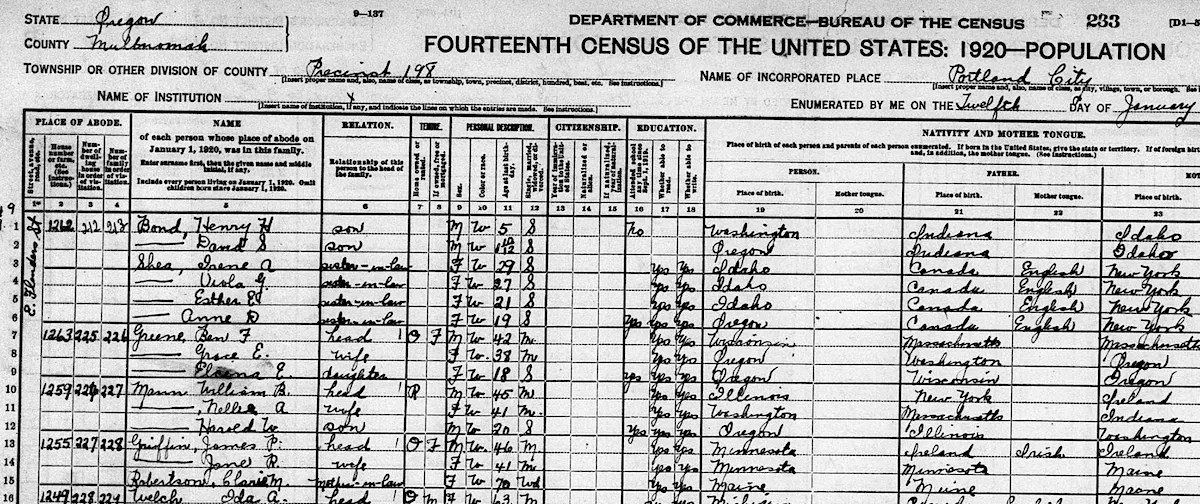 STATE Oregon
COUNTY Multnomah
9-137
DEPARTMENT OF COMMERCE—BUREAU OF THE CENSUS
233
[D1-5
FOURTEENTH CENSUS OF THE UNITED STATES: 1920—POPULATION
TOWNSHIP OR OTHER DIVISION OF COUNTY Precinct 198
[Insert proper name and, also, name of class, as township, town, precinct, district, hundred, beat, etc. See instructions.]
NAME OF INCORPORATED PLACE Portland City
[Insert proper name and, also, name of class, as city, village, town, or borough. See
NAME OF INSTITUTION X
[Insert name of institution, if any, and indicate the lines on which the entries are made. See instructions.]
ENUMERATED BY ME ON THE Twelfth DAY OF January
PLACE OF ABODE. NAME RELATION. TENURE. PERSONAL DESCRIPTION. CITIZENSHIP. EDUCATION. NATIVITY AND MOTHER TONGUE.
of each person whose place of abode on January 1, 1920, was in this family.
Enter surname first, then the given name and middle initial, if any.
Include every person living on January 1, 1920. Omit children born since January 1, 1920.
Relationship of this person to the head of the family.
Place of birth of each person and parents of each person enumerated. If born in the United States, give the state or territory. If of foreign birth
and, in addition, the mother tongue. (See instructions.)
PERSON. FATHER. MOT
Place of birth. Mother tongue. Place of birth. Mother tongue. Place of birth.
1 2 3 4 5 6 7 8 9 10 11 12 13 14 15 16 17 18 19 20 21 22 23
E. Flanders St
1 1262 212 213 Bond, Henry H son M W 5 S No Washington Indiana Idaho
2 — David S son M W S Oregon Indiana Idaho
3 Shea, Irene A sister-in-law F W 29 S Yes Yes Idaho Canada English New York
4 — Viola G. sister-in-law F W 27 S Yes Yes Idaho Canada English New York
5 — Esther sister-in-law F W 21 S Yes Yes Idaho Canada English New York
6 — Anne D sister-in-law F W 19 S Yes Yes Yes Oregon Canada English New York
7 1263 225 226 Greene, Ben F head O F M W 42 M Yes Yes Wisconsin Massachusetts Massachusetts
8 — Grace E. wife F W 38 M Yes Yes Oregon Washington Oregon
9 — E. daughter F W 18 S Yes Yes Yes Oregon Wisconsin Oregon
10 1259 226 227 Mann William B. head R M W 45 M Yes Yes Illinois New York Ireland
11 —, Nellie A wife F W 41 M. Yes Yes Washington Massachusetts Indiana
12 — Harold W son M W 20 S Yes Yes Yes Oregon Illinois Washington
13 1255 227 228 Griffin, James P. head O F M W. 46 M Yes Yes Minnesota Ireland Irish Ireland
14 — Jane R. wife F W 41 M Yes Yes Minnesota Minnesota Maine
15 Robertson, M. mother-in-law F W 70 Wd Yes Yes Maine Maine Maine
16 1249 228 229 Welch Ida A. head O M F W 63 Yes Yes Michigan